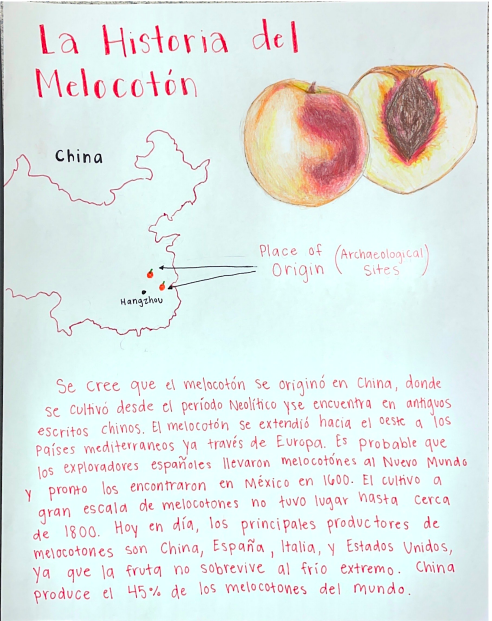 La Historia del
Melocotón
China
Place of (Archaeological)
Origin Sites
Hangzhou
Se cree que el melocotón se originó en China, donde
se cultivó desde el período Neolítico y se encuentra en antiguos
escritos chinos. El melocotón se extendió hacia el oeste a los
países mediterraneos ya través de Europa. Es probable que
los exploradores españoles llevaron melocotónes al Nuevo Mundo
y pronto los encontraron en México en 1600. El cultivo a
gran escala de melocotones no tuvo lugar hasta cerca
de 1800. Hoy en día, los principales productores de
melocotones son China, España, Italia, y Estados Unidos,
ya que la fruta no sobrevive al frío extremo. China
produce el 45% de los melocotones del mundo.